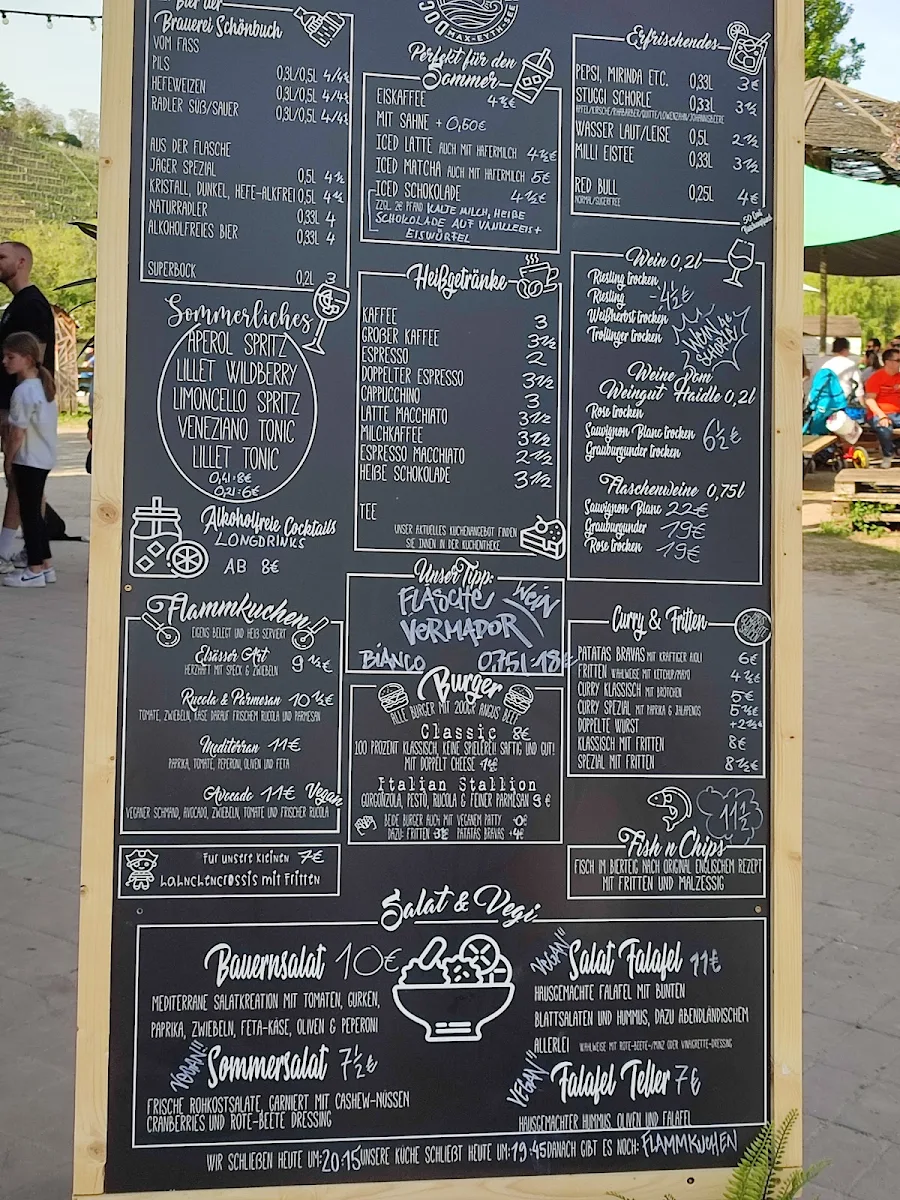 Bier der
Brauerei Schönbuch
VOM FASS
PILS 0,3L/0,5L 4/4½
HEFEWEIZEN 0,3L/0,5L 4/4½
RADLER SÜß/SAUER 0,3L/0,5L 4/4½
AUS DER FLASCHE
JÄGER SPEZIAL 0,5L 4½
KRISTALL, DUNKEL, HEFE-ALKFREI 0,5L 4½
NATURRADLER 0,33L 4
ALKOHOLFREIES BIER 0,33L 4
SUPERBOCK 0,2L 3
Sommerliches
APEROL SPRITZ
LILLET WILDBERRY
LIMONCELLO SPRITZ
VENEZIANO TONIC
LILLET TONIC
0,4l:8€
0,2l:6€
Alkoholfreie Cocktails
LONGDRINKS
AB 8€
Flammkuchen
EIGENS BELEGT UND HEIß SERVIERT
Elsässer Art 9½€
HERZHAFT MIT SPECK & ZWIEBELN
Rucola & Parmesan 10½€
TOMATE, ZWIEBELN, KÄSE DARAUF FRISCHEM RUCOLA UND PARMESAN
Mediterran 11€
PAPRIKA, TOMATE, PEPERONI, OLIVEN UND FETA
Avocado 11€ Vegan
VEGANER SCHMAND, AVOCADO, ZWIEBELN, TOMATE UND FRISCHER RUCOLA
Für unsere kleinen 7€
Hähnchencrossis mit Fritten
DOC
MAX-EYTH-SEE
Perfekt für den
Sommer
EISKAFFEE 4½€
MIT SAHNE +0,60€
ICED LATTE AUCH MIT HAFERMILCH 4½€
ICED MATCHA AUCH MIT HAFERMILCH 5€
ICED SCHOKOLADE 4½€
ZZGL. 2€ PFAND KALTE MILCH, HEIßE
SCHOKOLADE AUF VANILLEEIS+
EISWÜRFEL
Heißgetränke
KAFFEE 3
GROßER KAFFEE 3½
ESPRESSO 2
DOPPELTER ESPRESSO 3½
CAPPUCCHINO 3
LATTE MACCHIATO 3½
MILCHKAFFEE 3½
ESPRESSO MACCHIATO 2½
HEIßE SCHOKOLADE 3½
TEE
UNSER AKTUELLES KUCHENANGEBOT FINDEN
SIE INNEN IN DER KUCHENTHEKE
Unser Tipp:
FLASCHE WEIN
VERMADOR
BIANCO 0,75l-18€
Burger
ALLE BURGER MIT 200GR ANGUS BEEF
Classic 8€
100 PROZENT KLASSISCH, KEINE SPIELEREI! SAFTIG UND GUT!
MIT DOPPELT CHEESE 1½€
Italian Stallion
GORGONZOLA, PESTO, RUCOLA & FEINER PARMESAN 9€
BEIDE BURGER AUCH MIT VEGANEM PATTY
DAZU: FRITTEN +3€ PATATAS BRAVAS +4€
Erfrischendes
PEPSI, MIRINDA ETC. 0,33L 3€
STUGGI SCHORLE 0,33L 3½
APFEL/KIRSCHE/RHABARBER/QUITTE/LÖWENZAHN/JOHANNISBEERE
WASSER LAUT/LEISE 0,5L 2½
MILLI EISTEE 0,33L 3½
RED BULL 0,25L 4€
NORMAL/SUGARFREE
Wein 0,2l
Riesling trocken
Riesling -4½€
Weißherbst trocken
Trollinger trocken
WEIN als SCHORLE!
Weine vom
Weingut Haidle 0,2l
Rose trocken
Sauvignon Blanc trocken 6½€
Grauburgunder trocken
Flaschenweine 0,75l
Sauvignon Blanc 22€
Grauburgunder 19€
Rose trocken 19€
Curry & Fritten
PATATAS BRAVAS MIT KRÄFTIGER AIOLI 6€
FRITTEN WAHLWEISE MIT KETCHUP/MAYO 4½€
CURRY KLASSISCH MIT BRÖTCHEN 5€
CURRY SPEZIAL MIT PAPRIKA & JALAPENOS 5½€
DOPPELTE WURST +2½€
KLASSISCH MIT FRITTEN 8€
SPEZIAL MIT FRITTEN 8½€
11½
Fish n Chips
FISCH IM BIERTEIG NACH ORIGINAL ENGLISCHEM REZEPT
MIT FRITTEN UND MALZESSIG
Salat & Vegi
Bauernsalat 10€
MEDITERRANE SALATKREATION MIT TOMATEN, GURKEN,
PAPRIKA, ZWIEBELN, FETA-KÄSE, OLIVEN & PEPERONI
VEGAN!! Sommersalat 7½€
FRISCHE ROHKOSTSALATE, GARNIERT MIT CASHEW-NÜSSEN
CRANBERRIES UND ROTE-BEETE DRESSING
VEGAN!! Salat Falafel 11€
HAUSGEMACHTE FALAFEL MIT BUNTEN
BLATTSALATEN UND HUMMUS, DAZU ABENDLÄNDISCHEM
ALLERLEI WAHLWEISE MIT ROTE-BEETE-/MINZ ODER VINAIGRETTE-DRESSING
VEGAN!! Falafel Teller 7€
HAUSGEMACHTER HUMMUS, OLIVEN UND FALAFEL
WIR SCHLIEßEN HEUTE UM:20:15 UNSERE KÜCHE SCHLIEßT HEUTE UM:19:45 DANACH GIBT ES NOCH: FLAMMKUCHEN